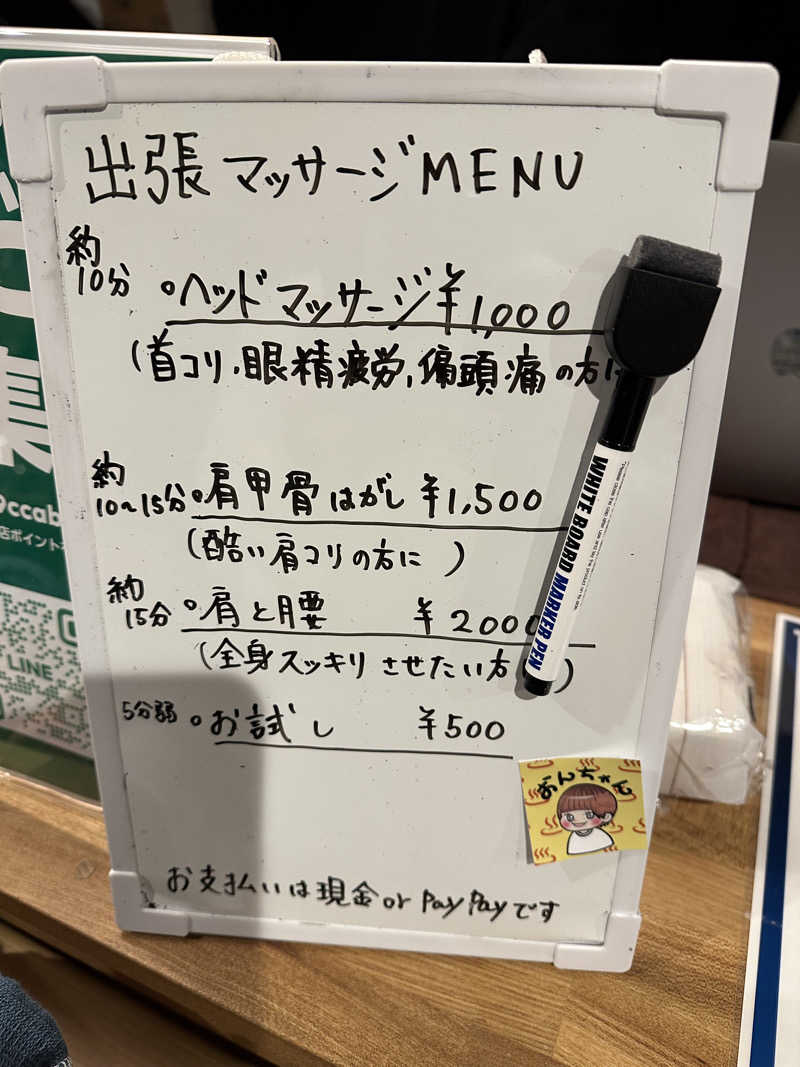 出張マッサージMENU
約
10分
・ヘッドマッサージ ¥1,000
(首コリ、眼精疲労、偏頭痛の方に
約
10~15分
・肩甲骨はがし ¥1,500
(酷い肩コリの方に)
約
15分
・肩と腰 ¥2000
(全身スッキリさせたい方 )
5分弱
・お試し ¥500
お支払いは現金or PayPayです
WHITE BOARD MARKER PEN
あんちゃん
集
ccab
店ポイント
LINE